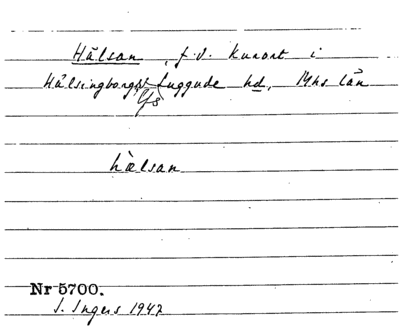 Hälsan, f.d. kurort i
Hälsingborgs Luggude hd, Mhs län
hälsan
Nr 5700.
I. Ingers 1947